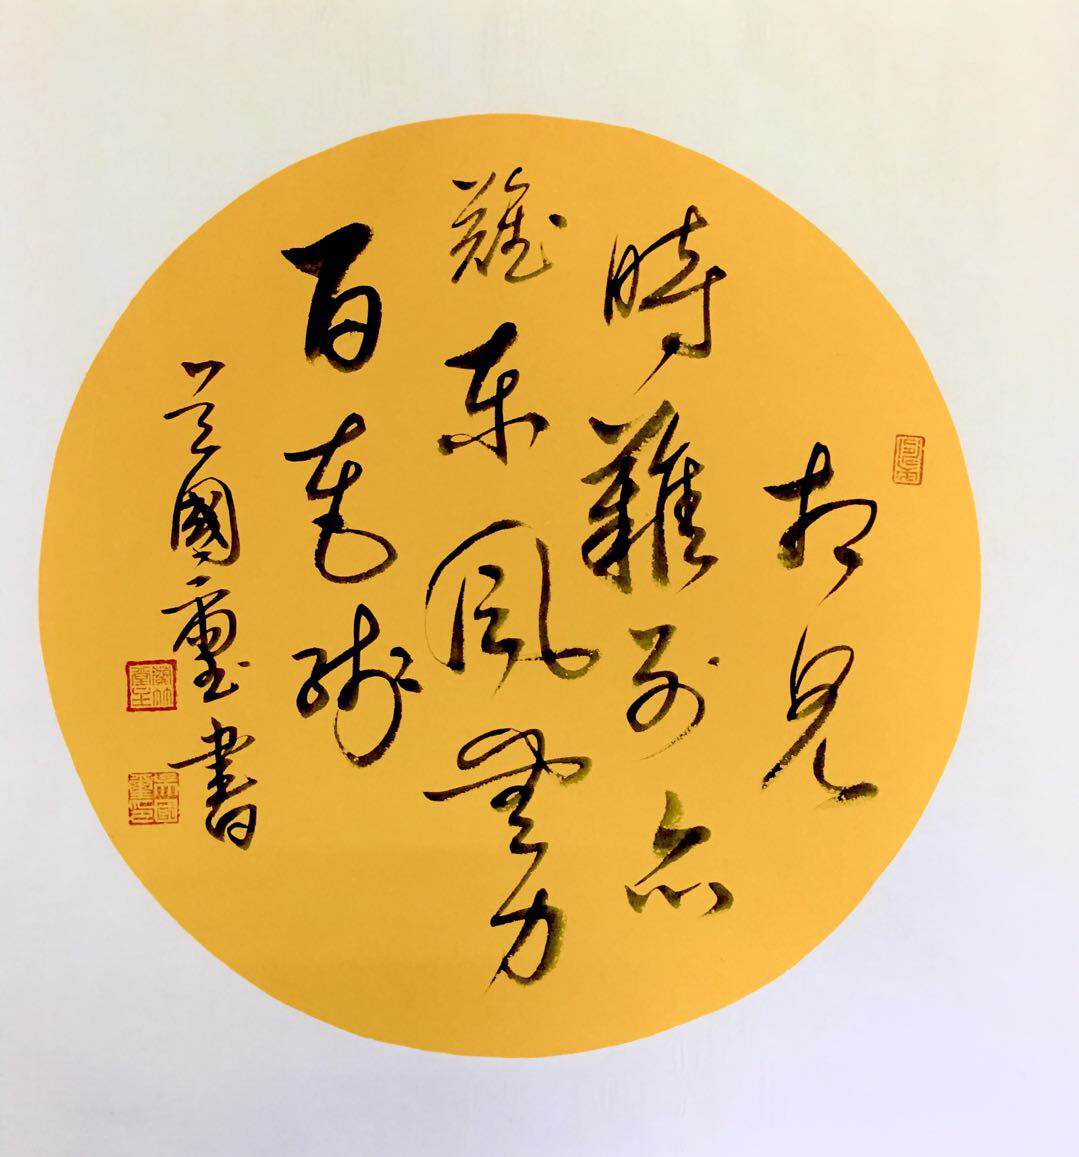 相見
時難別亦
難東風無力
百花殘
吳國璽書